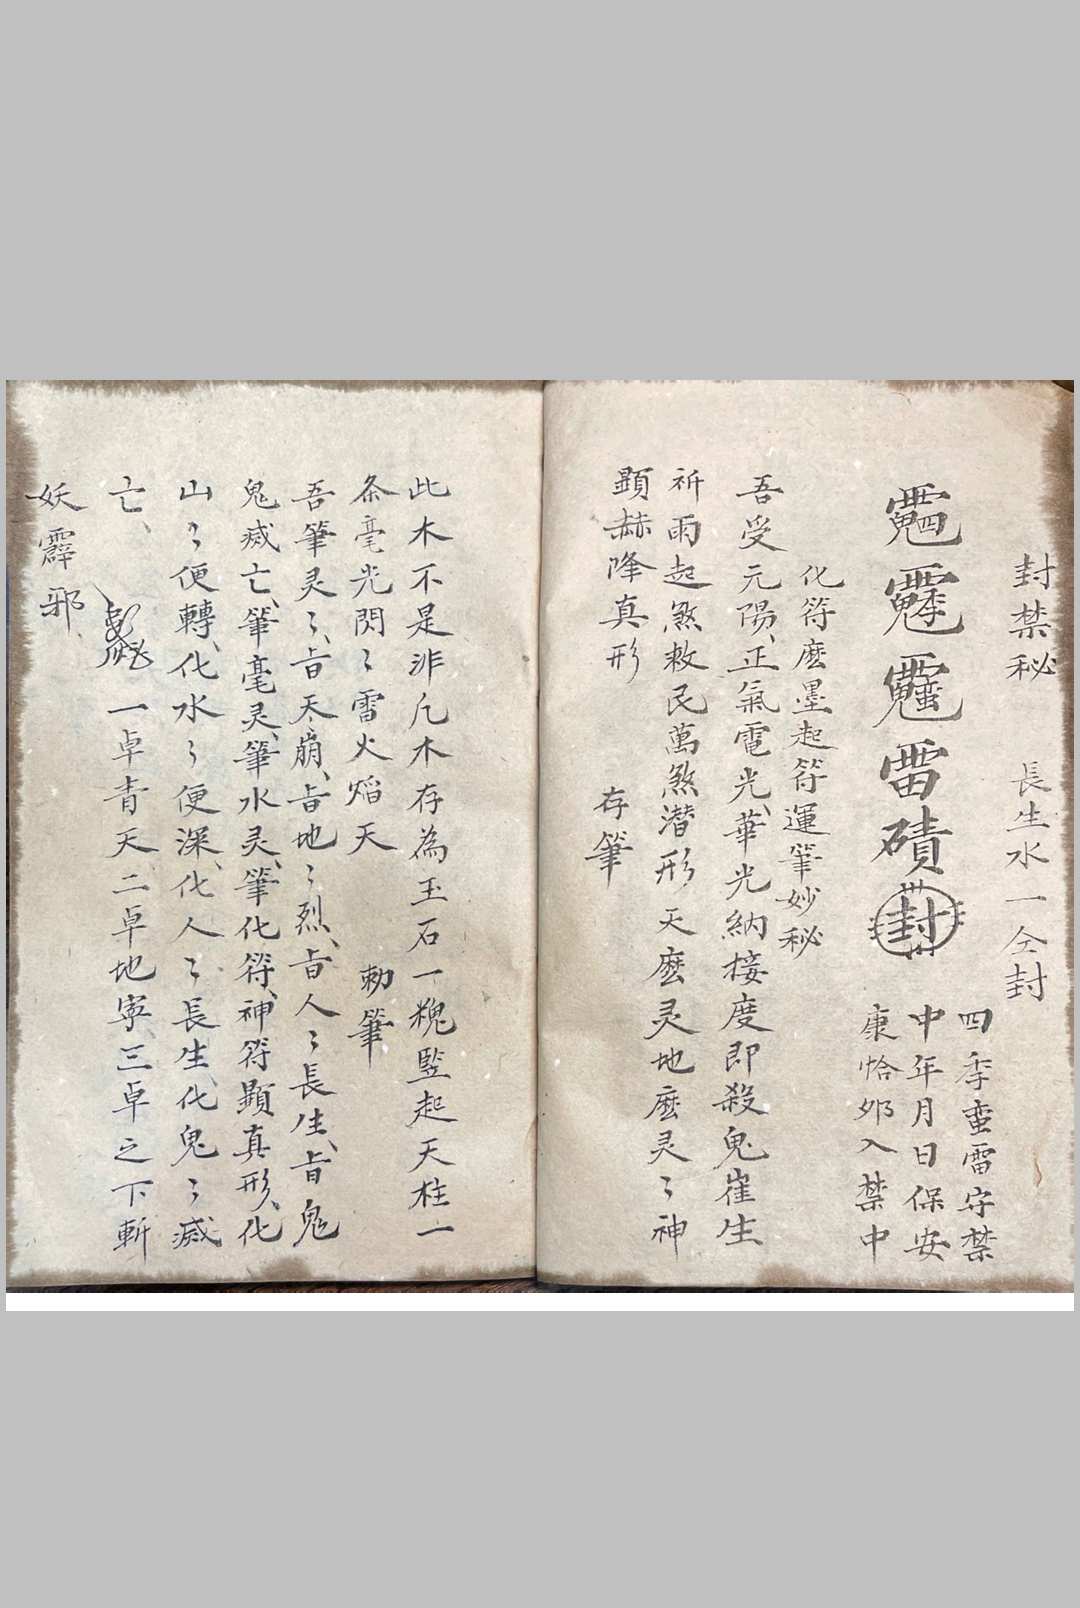 封禁秘　長生水一仝封
四季蛮雷守禁
中年月日保安
康恰邜入禁中
雷磧封
化符麽墨起符運筆妙秘
吾受元陽、正氣電光、華光納接度即殺鬼崔生
祈雨起煞救民萬煞潜形天麽灵地麽灵〻神
顕赫降真形　存筆
此木不是非凡木存為玉石一䂓监起天柱一
条毫光閃〻雷火熖天　勅筆
吾筆灵〻、㫖天崩、㫖地〻烈、㫖人〻長生、㫖鬼
鬼㓕亡、筆毫灵、筆水灵、筆化符、神符顕真形、化
山〻便轉、化水〻便深、化人〻長生、化鬼〻㓕
亡、一卓青天、二卓地寧、三卓之下斬
妖霹邪